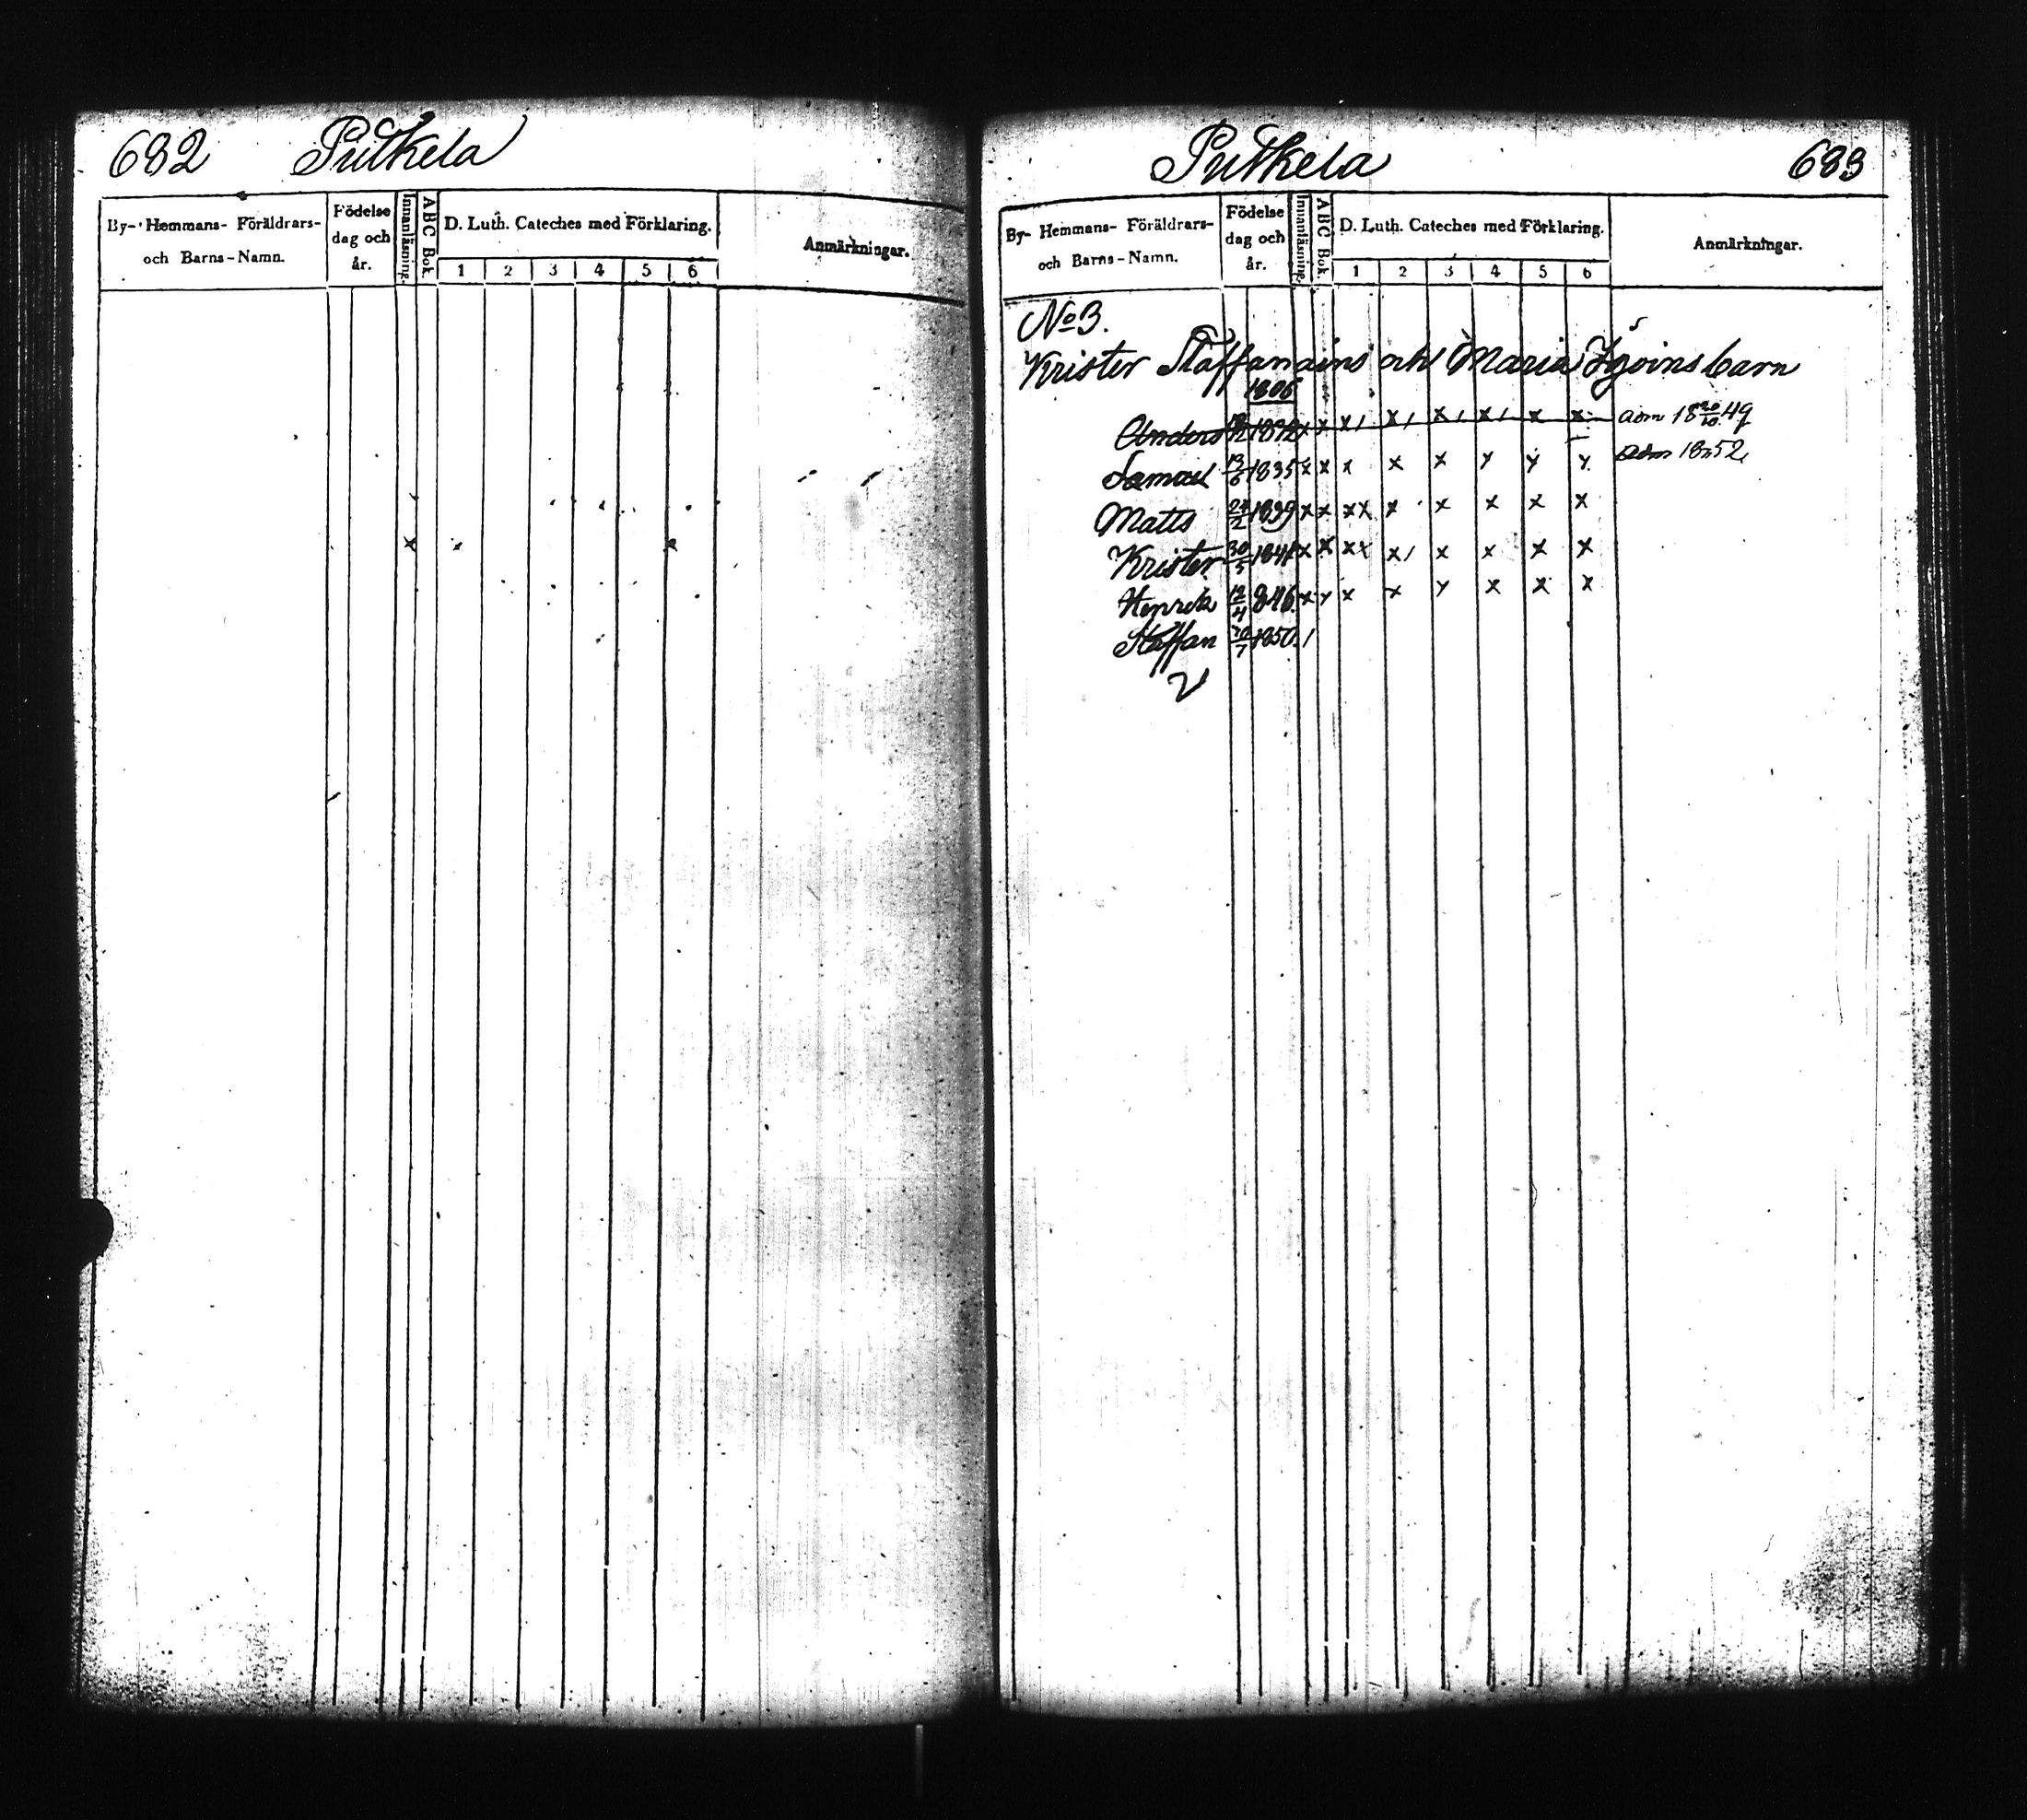 682 Putkela
By- Hemmans- Föräldrars- och Barns-Namn.
Födelse dag och år.
Innanläsning.
ABC Bok.
D. Luth. Cateches med Förklaring.
1 2 3 4 5 6
Anmärkningar.
Putkela 683
By- Hemmans- Föräldrars- och Barns-Namn.
Födelse dag och år.
Innanläsning.
ABC Bok.
D. Luth. Cateches med Förklaring.
1 2 3 4 5 6
Anmärkningar.
No 3.
Krister Staffanains och Maria barn
1806
Anders x x x/ x/ x/ x/ x x adm 18 20/10 49
Samuel 13/6 1835 x x x x x x x x adm 1852
Matts 1839 x x xx x x x x x
Krister 30/5 184 x x xx x/ x x x x
Henrik 12/4 846 x x x x x x x x
Staffan 1850 /